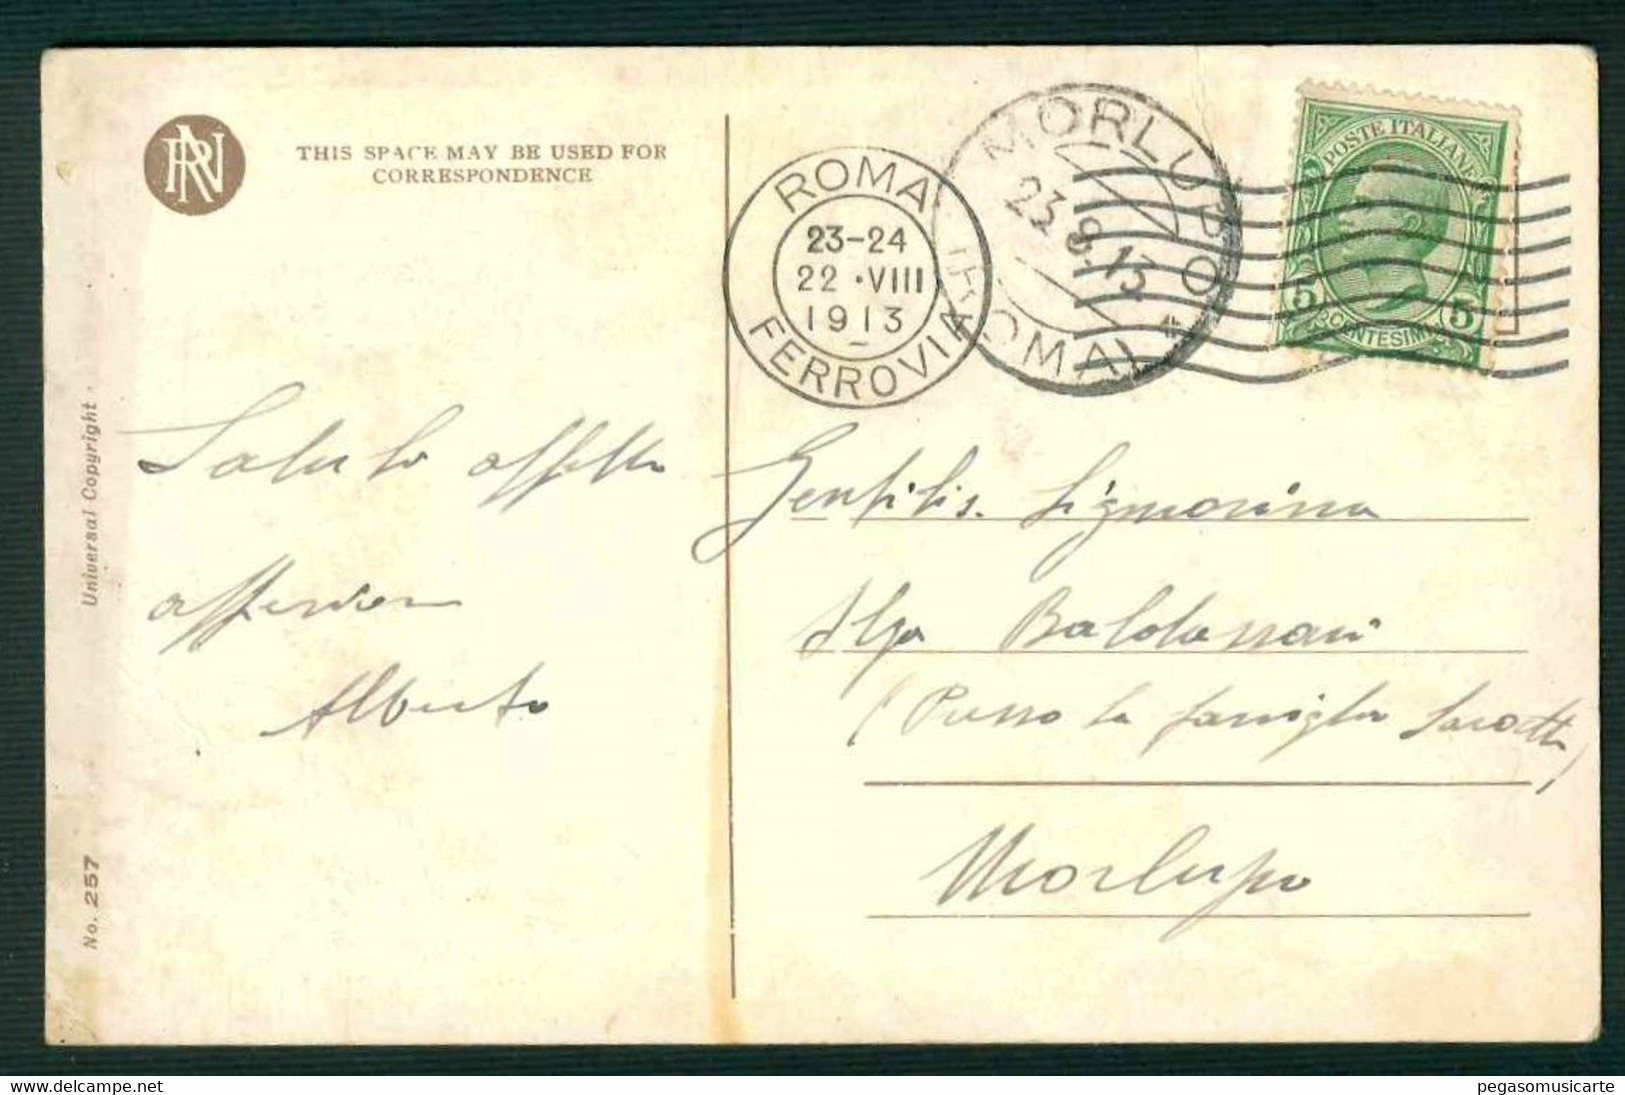 RN
THIS SPACE MAY BE USED FOR
CORRESPONDENCE
ROMA
23-24
22·VIII
1913
FERROVIA
MORLUPO
23.8.13
(ROMA)
POSTE ITALIANE
5 CENTESIMI 5
Universal Copyright
No. 257
Saluto affetto
Alberto
Gentilis. Signorina
Baldassari
(Presso la famiglia
Morlupo
delcampe.net
pegasomusicarte